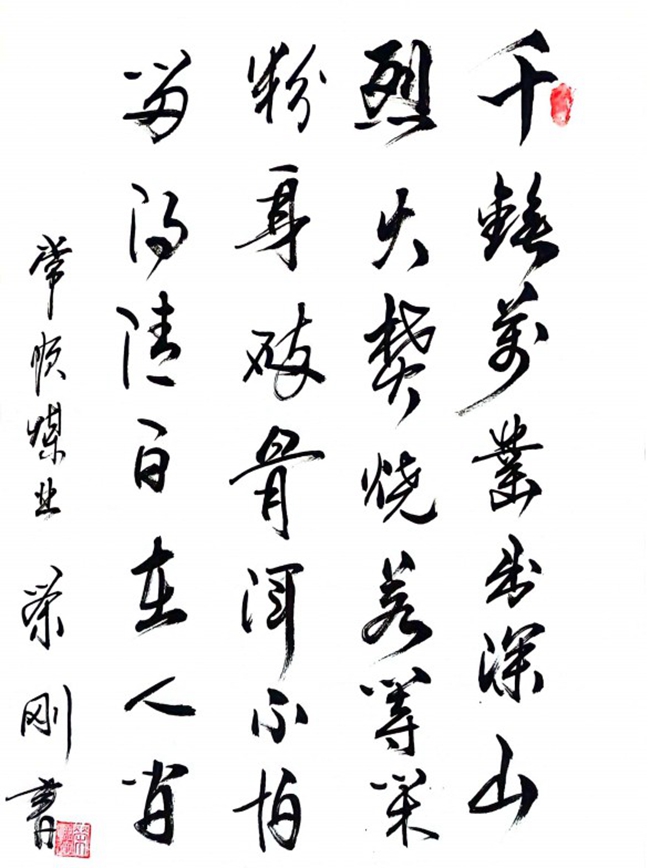 千錘萬凿出深山
烈火焚烧若等闲
粉身破骨浑不怕
留得清白在人间
常顺煤业 荣刚書